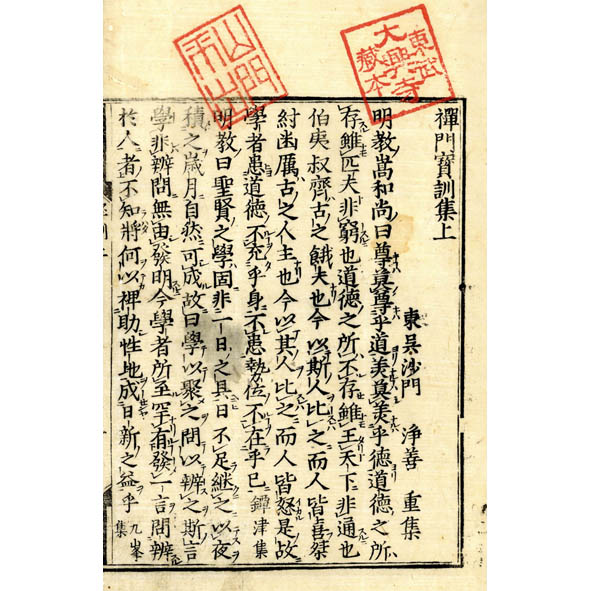 東武
大興寺
藏本
山門
不出
禪門寶訓集上
東吳沙門 淨善 重集
明教嵩和尚曰尊莫尊乎道美莫美乎德道德之所
存雖匹夫非窮也道德之所不存雖王天下非通也
伯夷叔齊古之餓夫也今以斯人比之而人皆喜桀
紂幽厲古之人主也今以其人比之而人皆怒是故
學者患道德不充乎身不患勢位不在乎己 鐔津集
明教曰聖賢之學固非一日之具日不足繼之以夜
積之歲月自然可成故曰學以聚之問以辨之斯言
學非辨問無由發明今學者所至罕有發一言問辨
於人者不知將何以裨助性地成日新之益乎 九峯集